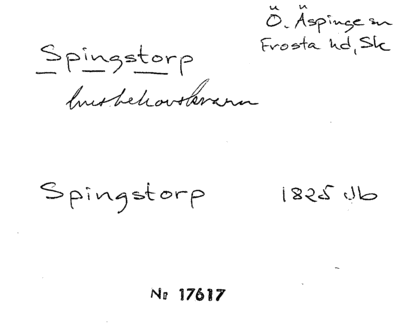 Ö. Äspinge sn
Frosta hd, Sk
Spingstorp
husbehovskvarn
Spingstorp 1825 Jb
No 17617